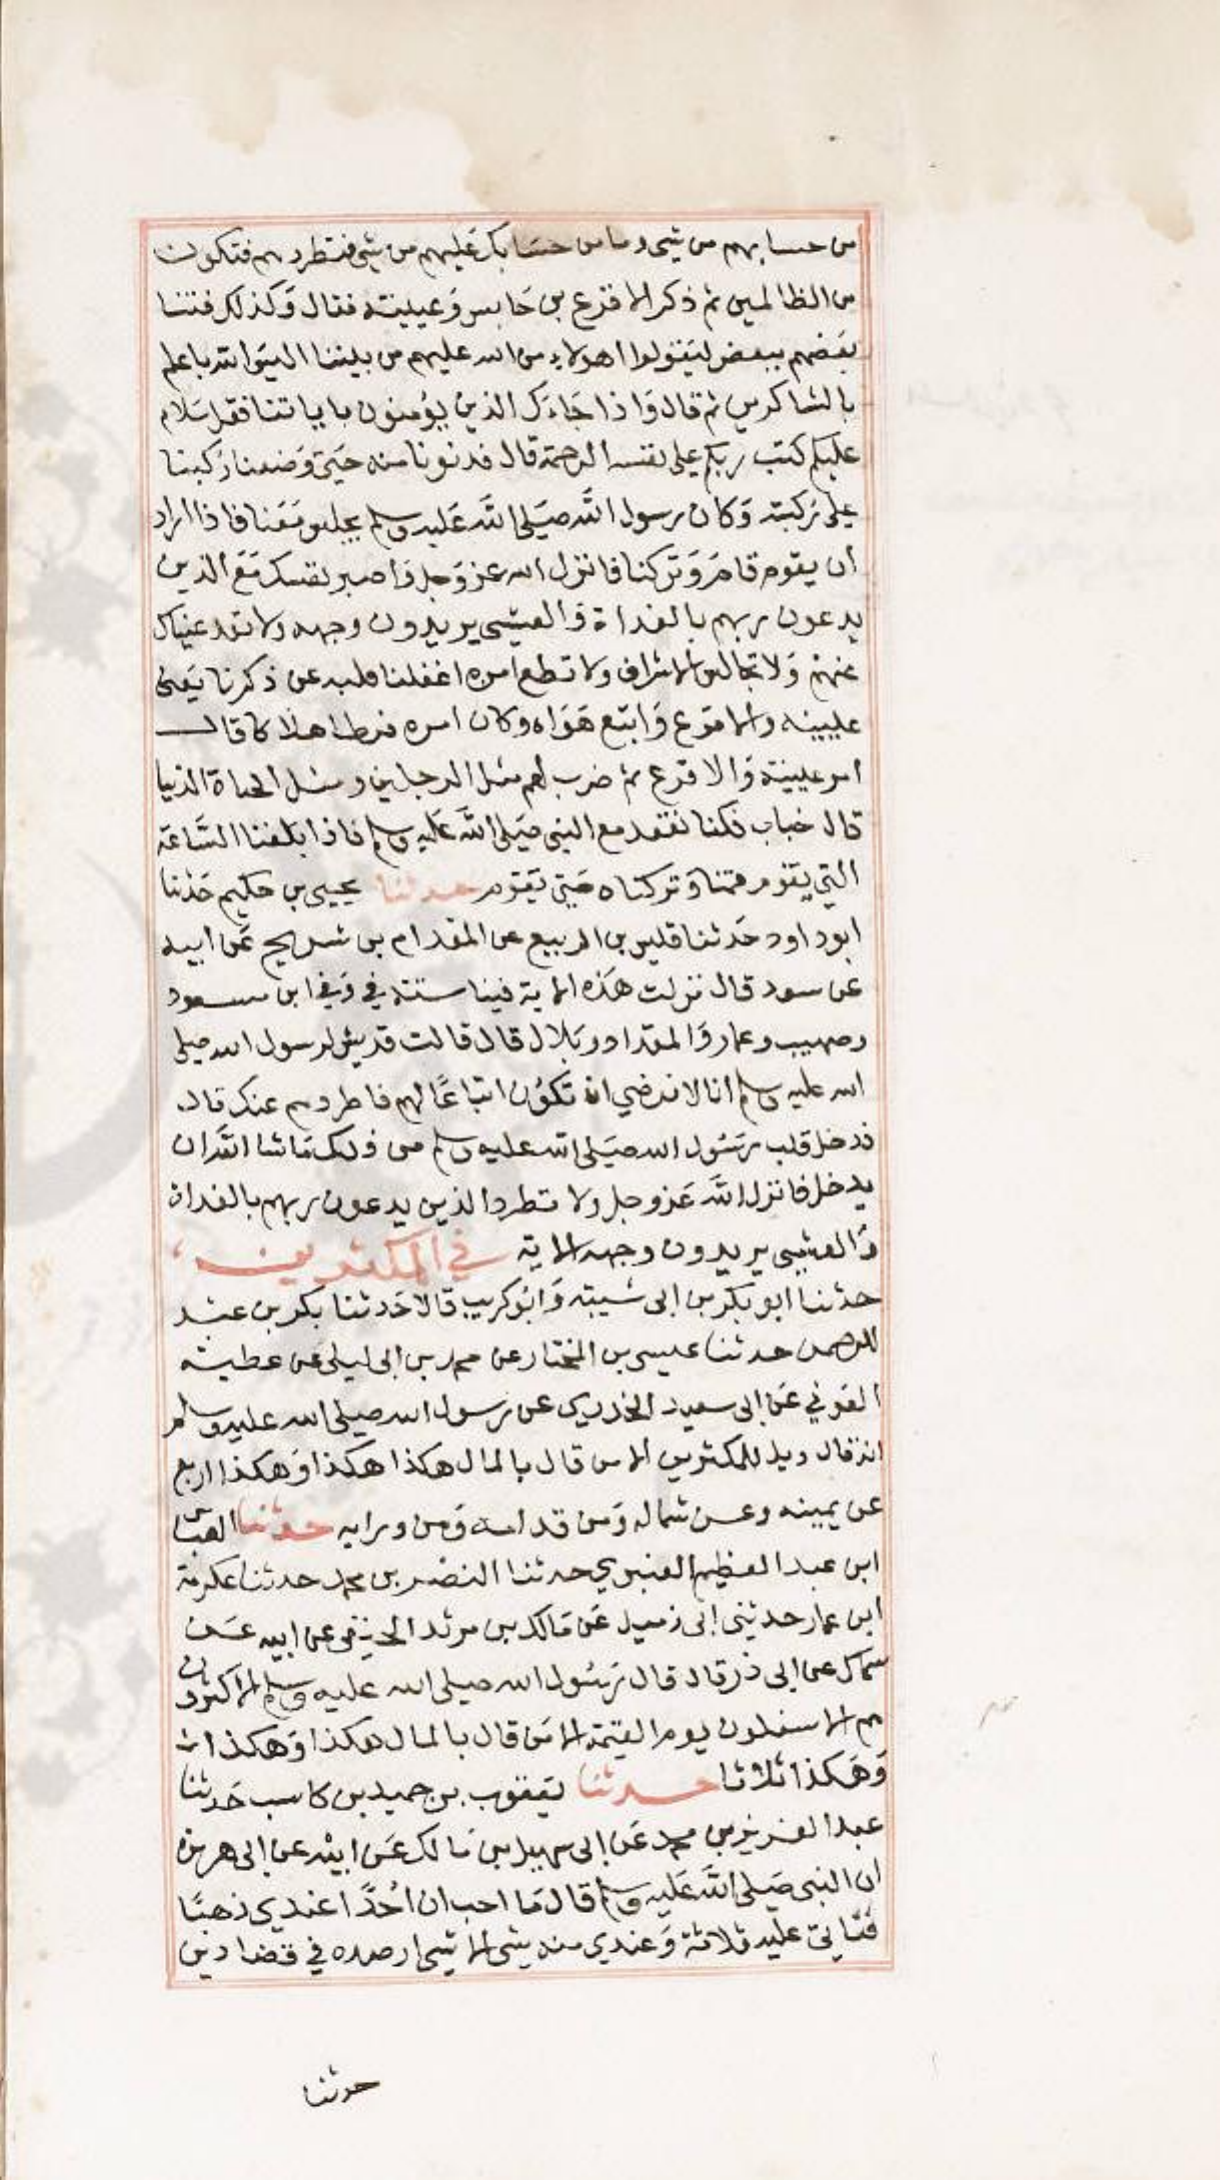 من حسابهم من شي وما من حسابك عليهم من شي فتطردهم فتكون
من الظالمين ثم ذكر الاقرع بن حابس وعيينة فقال وكذلك فتنا
بعضهم ببعض ليقولوا اهولاء من الله عليهم من بيننا اليس الله باعلم
بالشاكرين ثم قال واذا جاءك الذين يؤمنون باياتنا فقل سلام
عليكم كتب ربكم على نفسه الرحمة قال فدنونا منه حتى وضعنا ركبنا
على ركبته وكان رسول الله صلى الله عليه وسلم يجلس معنا فاذا اراد
ان يقوم قام وتركنا فانزل الله عز وجل واصبر نفسك مع الذين
يدعون ربهم بالغداة والعشي يريدون وجهه ولا تعد عيناك
عنهم ولا تجالس الاشراف ولا تطع من اغفلنا قلبه عن ذكرنا يعني
عيينه والاقرع واتبع هواه وكان امره فرطا هلاكا قال
امر عيينة والاقرع ثم ضرب لهم مثل الرجلين ومثل الحياة الدنيا
قال خباب فكنا نقعد مع النبي صلى الله عليه وسلم فاذا بلغنا الساعة
التي يقوم قمنا وتركناه حتى يقوم حدثنا يحيى بن حكيم حدثنا
ابو داود حدثنا قيس بن الربيع عن المقدام بن شريح عن ابيه
عن سعد قال نزلت هذه الاية فينا ستة في وفي ابن مسعود
وصهيب وعمار والمقداد وبلال قال قالت قريش لرسول الله صلى
الله عليه وسلم انا لا نرضي ان تكون اتباعا لهم فاطردهم عنك قال
فدخل قلب رسول الله صلى الله عليه وسلم من ذلك ما شا الله ان
يدخل فانزل الله عز وجل ولا تطرد الذين يدعون ربهم بالغداة
والعشي يريدون وجهه الاية في المكثرين
حدثنا ابو بكر بن ابى شيبة وابو كريب قالا حدثنا بكر بن عبد
الرحمن حدثنا عيسى بن المختار عن محمد بن ابى ليلى عن عطية
العوفي عن ابى سعيد الخدري عن رسول الله صلى الله عليه وسلم
انه قال ويل للمكثرين الا من قال بالمال هكذا هكذا وهكذا اربع
عن يمينه وعن شماله ومن قدامه ومن ورايه حدثنا العباس
ابن عبد العظيم العنبري حدثنا النضر بن محمد حدثنا عكرمة
ابن عمار حدثني ابى زميل عن مالك بن مرثد الحنفي عن ابيه عن
سماك عن ابى ذر قال قال رسول الله صلى الله عليه وسلم الاكثرون
هم الاسفلون يوم القيمة الا من قال بالمال هكذا وهكذا
وهكذا ثلاثا حدثنا يعقوب بن حميد بن كاسب حدثنا
عبد العزيز بن محمد عن ابى سهيل بن مالك عن ابيه عن ابى هريرة
ان النبى صلى الله عليه وسلم قال ما احب ان احدا عندي ذهبا
فتاتي عليه ثلاثة وعندي منه شي الا شي ارصده في قضا دين
حدثنا